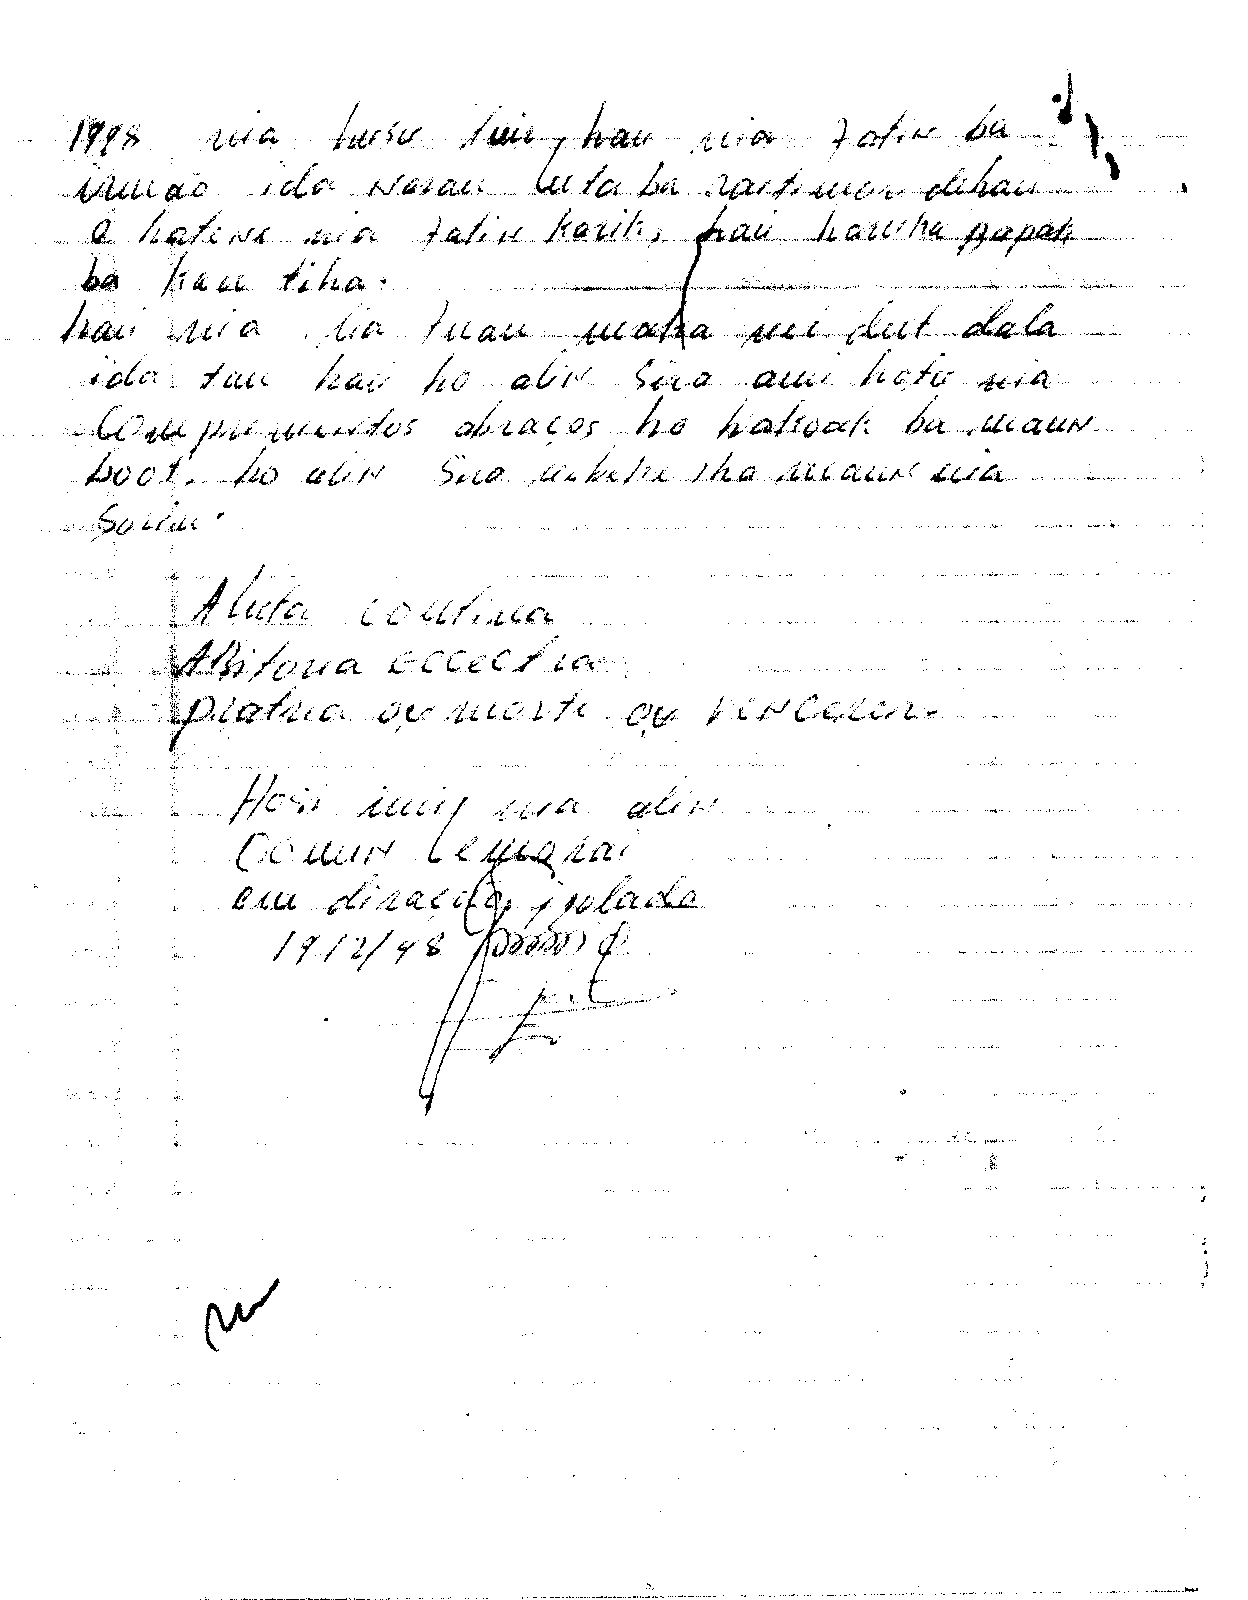 1998 nia husu tuir, hau nia fatin ba
irmão ida naran Luta ba rai timor dehan
o hatene nia fatin karik, hau haruka
ba kau tiha.
hau nia lia fuan maka ne dut dala
ida tan hau ho alin Sira ami hato nia
Comprementos abraços ho hakoak ba maun
boot. ho alin Sira nebehe iha maun nia
Sorin.
A luta continua
A Bitoria
piatria ou morte ou vencerer.
Hosi imi nia alin
Comin Lemorai
em diracção
1912/98